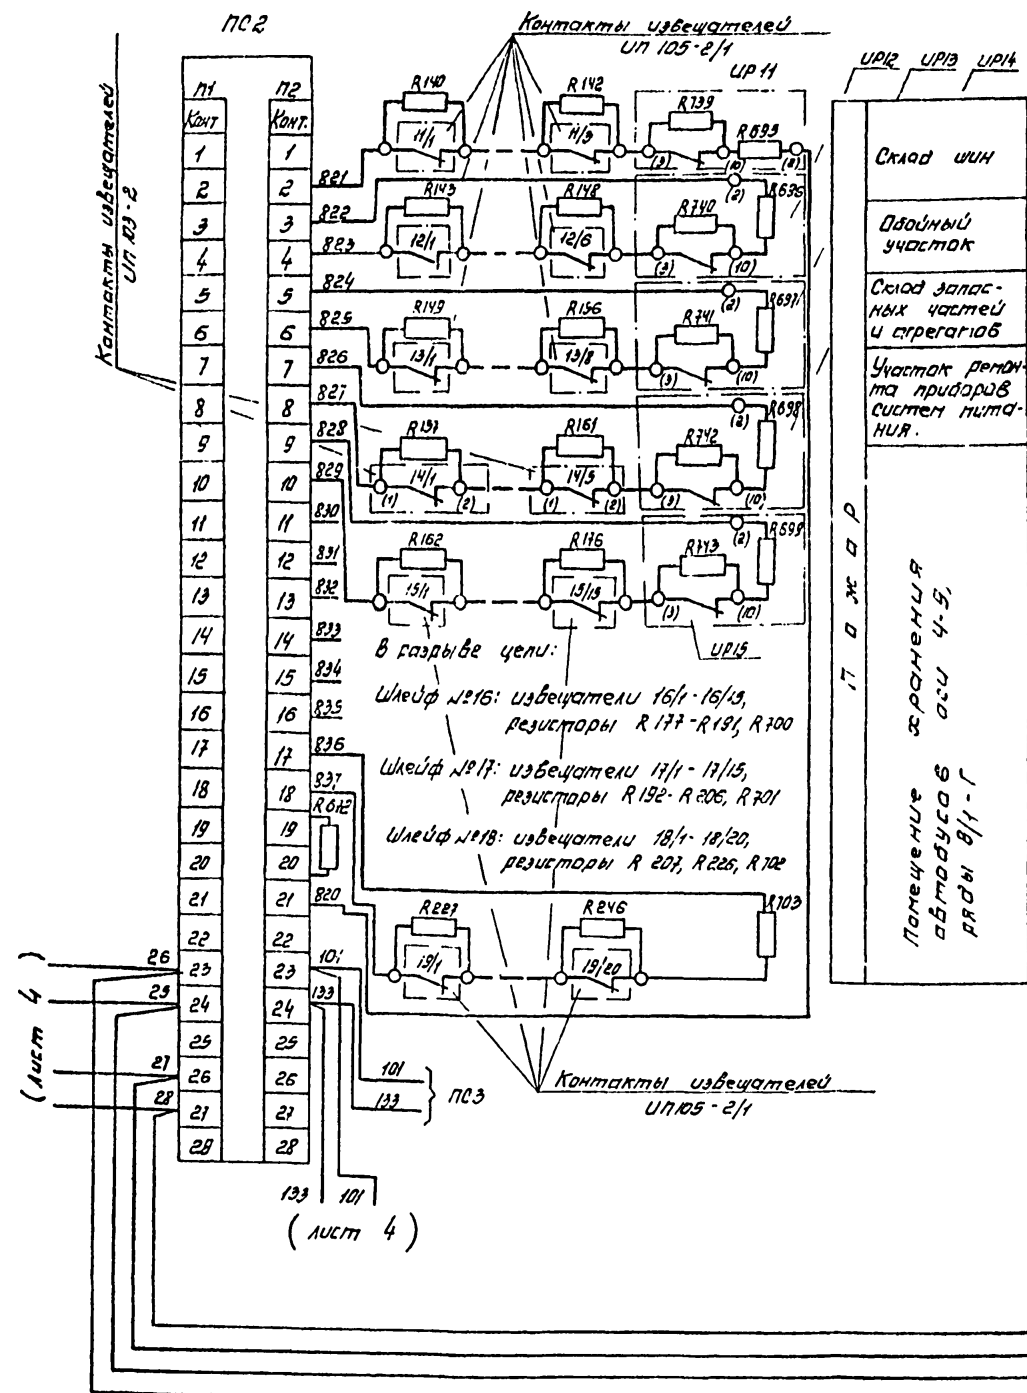 ПС2
Контакты извещателей
ИП 105-2/1
ИР11
ИР12
ИР13
ИР14
Контакты извещателей
ИП 103-2
П1
Конт
1
2
3
4
5
6
7
8
9
10
11
12
13
14
15
16
17
18
19
20
21
22
23
24
25
26
27
28
П2
Конт.
1
2
3
4
5
6
7
8
9
10
11
12
13
14
15
16
17
18
19
20
21
22
23
24
25
26
27
28
821
822
823
824
825
826
827
828
829
830
831
832
833
834
835
836
837
R672
820
101
133
R140
R142
R739
R695
11/1
11/3
(3)
(10)
(2)
R143
R148
R740
R696
12/1
12/6
(3)
(10)
(2)
R149
R156
R741
R697
13/1
13/8
(3)
(10)
(2)
R157
R161
R742
R698
14/1
14/5
(1)
(2)
(1)
(2)
(3)
(10)
(2)
R162
R176
R743
R699
15/1
15/15
(3)
(10)
(2)
ИР15
В разрыве цепи:
Шлейф №16: извещатели 16/1-16/15,
резисторы R177-R191, R700
Шлейф №17: извещатели 17/1-17/15,
резисторы R192-R206, R701
Шлейф №18: извещатели 18/1-18/20,
резисторы R 207, R226, R702
R227
R246
R703
19/1
19/20
Контакты извещателей
ИП105-2/1
101
133
ПС3
133
101
(лист 4)
26
25
27
28
(лист 4)
Пожар
Склад шин
Обойный
участок
Склад запас-
ных частей
и агрегатов
Участок ремон-
та приборов
систем пита-
ния.
Помещение хранения
автобусов оси 4-5,
ряды В/1-Г